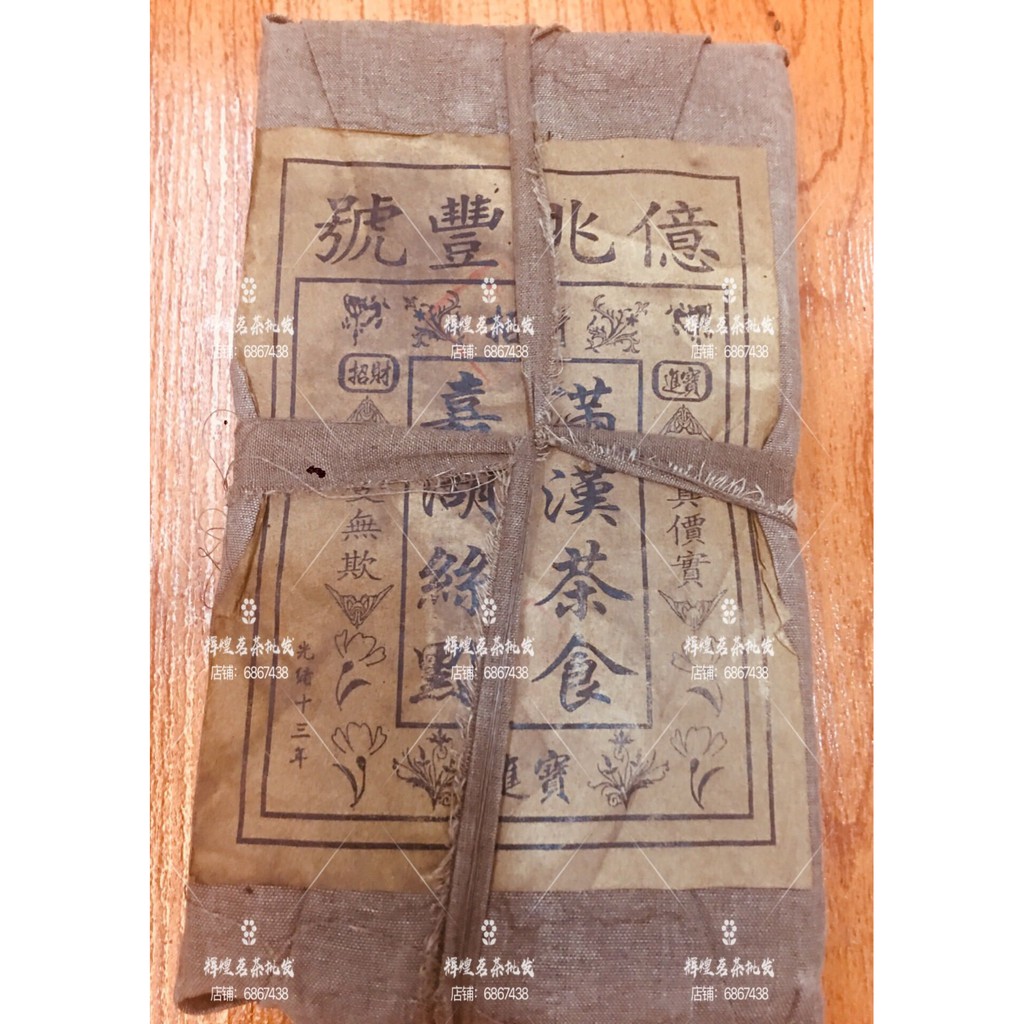 億兆豐號
招
進寶
真價實
滿漢茶食
嘉湖絲點
招財
叟無欺
光緒十三年
進寶
辉煌茗茶批发
店铺：6867438
辉煌茗茶批发
店铺：6867438
辉煌茗茶批发
店铺：6867438
辉煌茗茶批发
店铺：6867438
辉煌茗茶批发
店铺：6867438
辉煌茗茶批发
店铺：6867438
辉煌茗茶批发
店铺：6867438
辉煌茗茶批发
店铺：6867438
辉煌茗茶批发
店铺：6867438